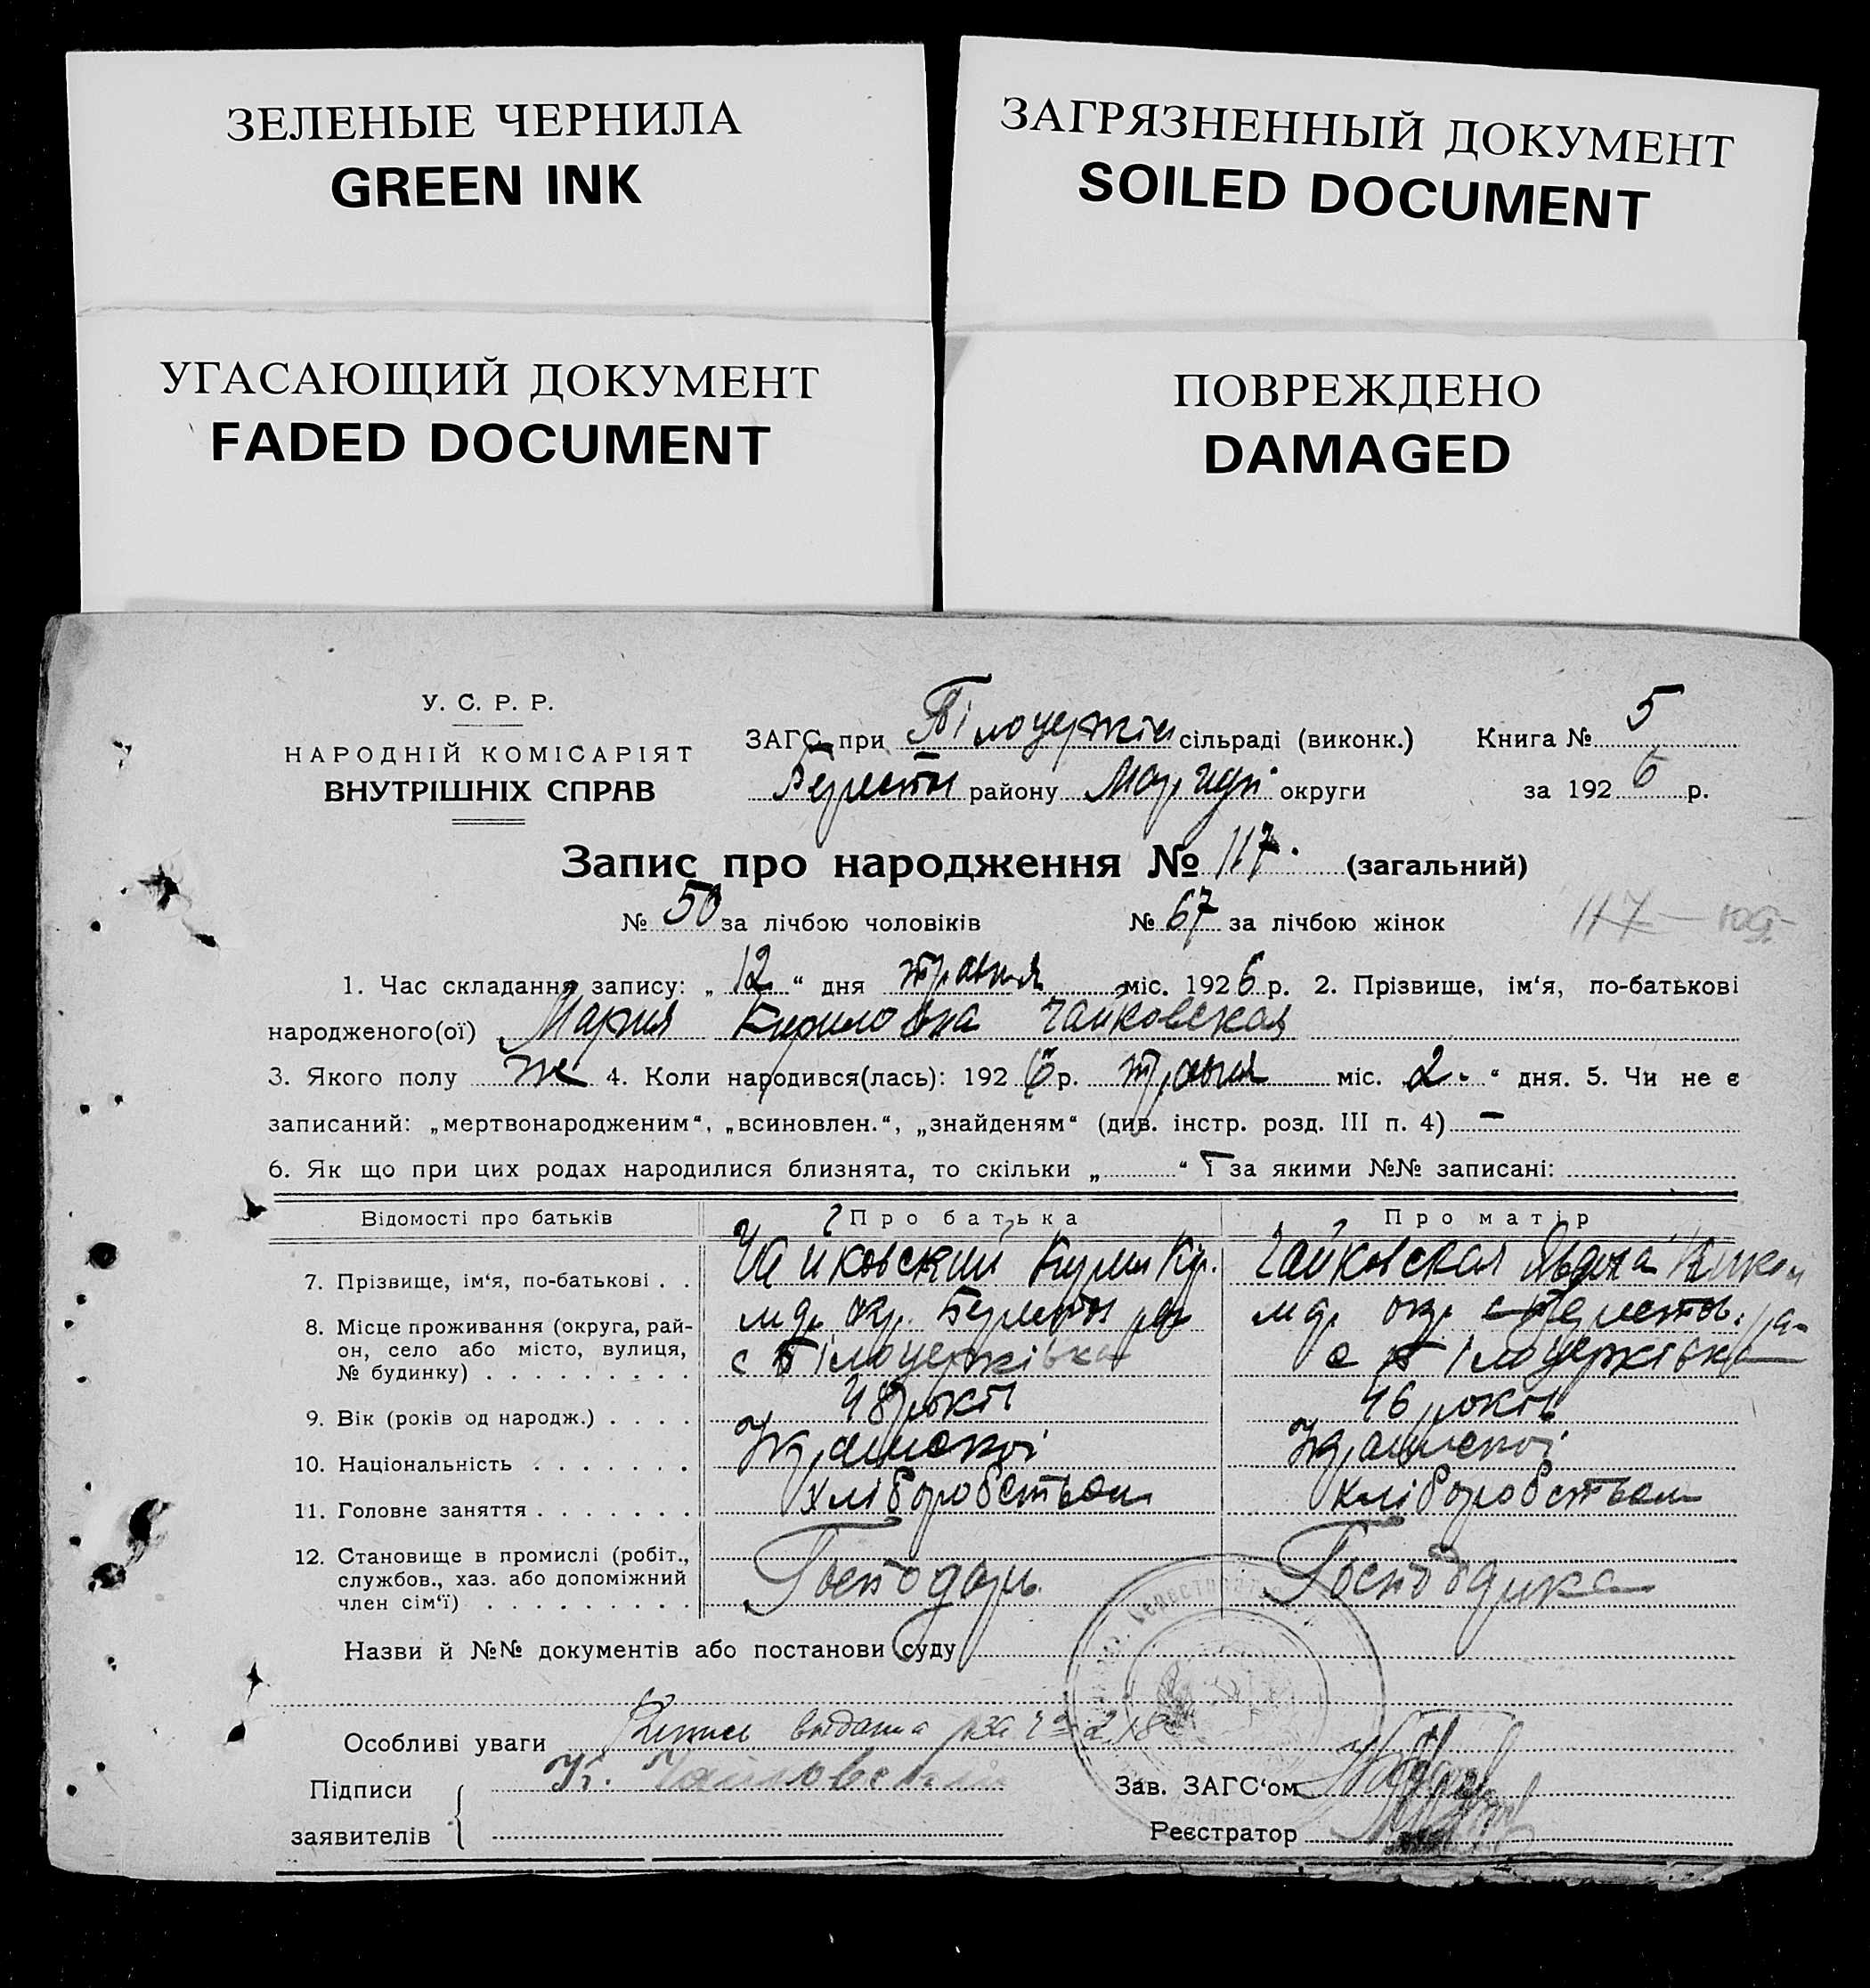 ЗЕЛЕНЫЕ ЧЕРНИЛА
GREEN INK
ЗАГРЯЗНЕННЫЙ ДОКУМЕНТ
SOILED DOCUMENT
УГАСАЮЩИЙ ДОКУМЕНТ
FADED DOCUMENT
ПОВРЕЖДЕНО
DAMAGED
У. С. Р. Р.
НАРОДНІЙ КОМІСАРІЯТ
ВНУТРІШНІХ СПРАВ
ЗАГС при Білоцерків сільраді (виконк.) Книга № 5
району округи за 1926 р.
Запис про народження № 117. (загальний)
№ 50 за лічбою чоловіків № 67 за лічбою жінок 117
1. Час складання запису: „ 12 “ дня травня міс. 1926 р. 2. Прізвище, ім‘я, по-батькові
народженого(ої) Мария Кириловна Чайковская
3. Якого полу ж 4. Коли народився(лась): 1926 р. травня міс. 2 “ дня. 5. Чи не є
записаний: „мертвонародженим“, „всиновлен.“, „знайденям“ (див. інстр. розд. III п. 4) –
6. Як що при цих родах народилися близнята, то скільки „ “ і за якими №№ записані:
Відомості про батьків Про батька Про матір
7. Прізвище, ім‘я, по-батькові . . Чайковский Кирил Кір. Чайковская
8. Місце проживання (округа, рай-
он, село або місто, вулиця, с Білоцерківка с Білоцерківка
№ будинку) . . . . . . . . .
9. Вік (років од народж.) . . . . 48 рокі 46 років
10. Національність . . . . . . . Української Української
11. Головне заняття . . . . . . . хліборобством хліборобством
12. Становище в промислі (робіт.,
службов., хаз. або допоміжний Господарь Господарка
член сім‘ї) . . . . . . . . .
Назви й №№ документів або постанови суду
Особливі уваги выдана за №
Підписи К. Чайковский Зав. ЗАГС‘ом
заявителів Реєстратор